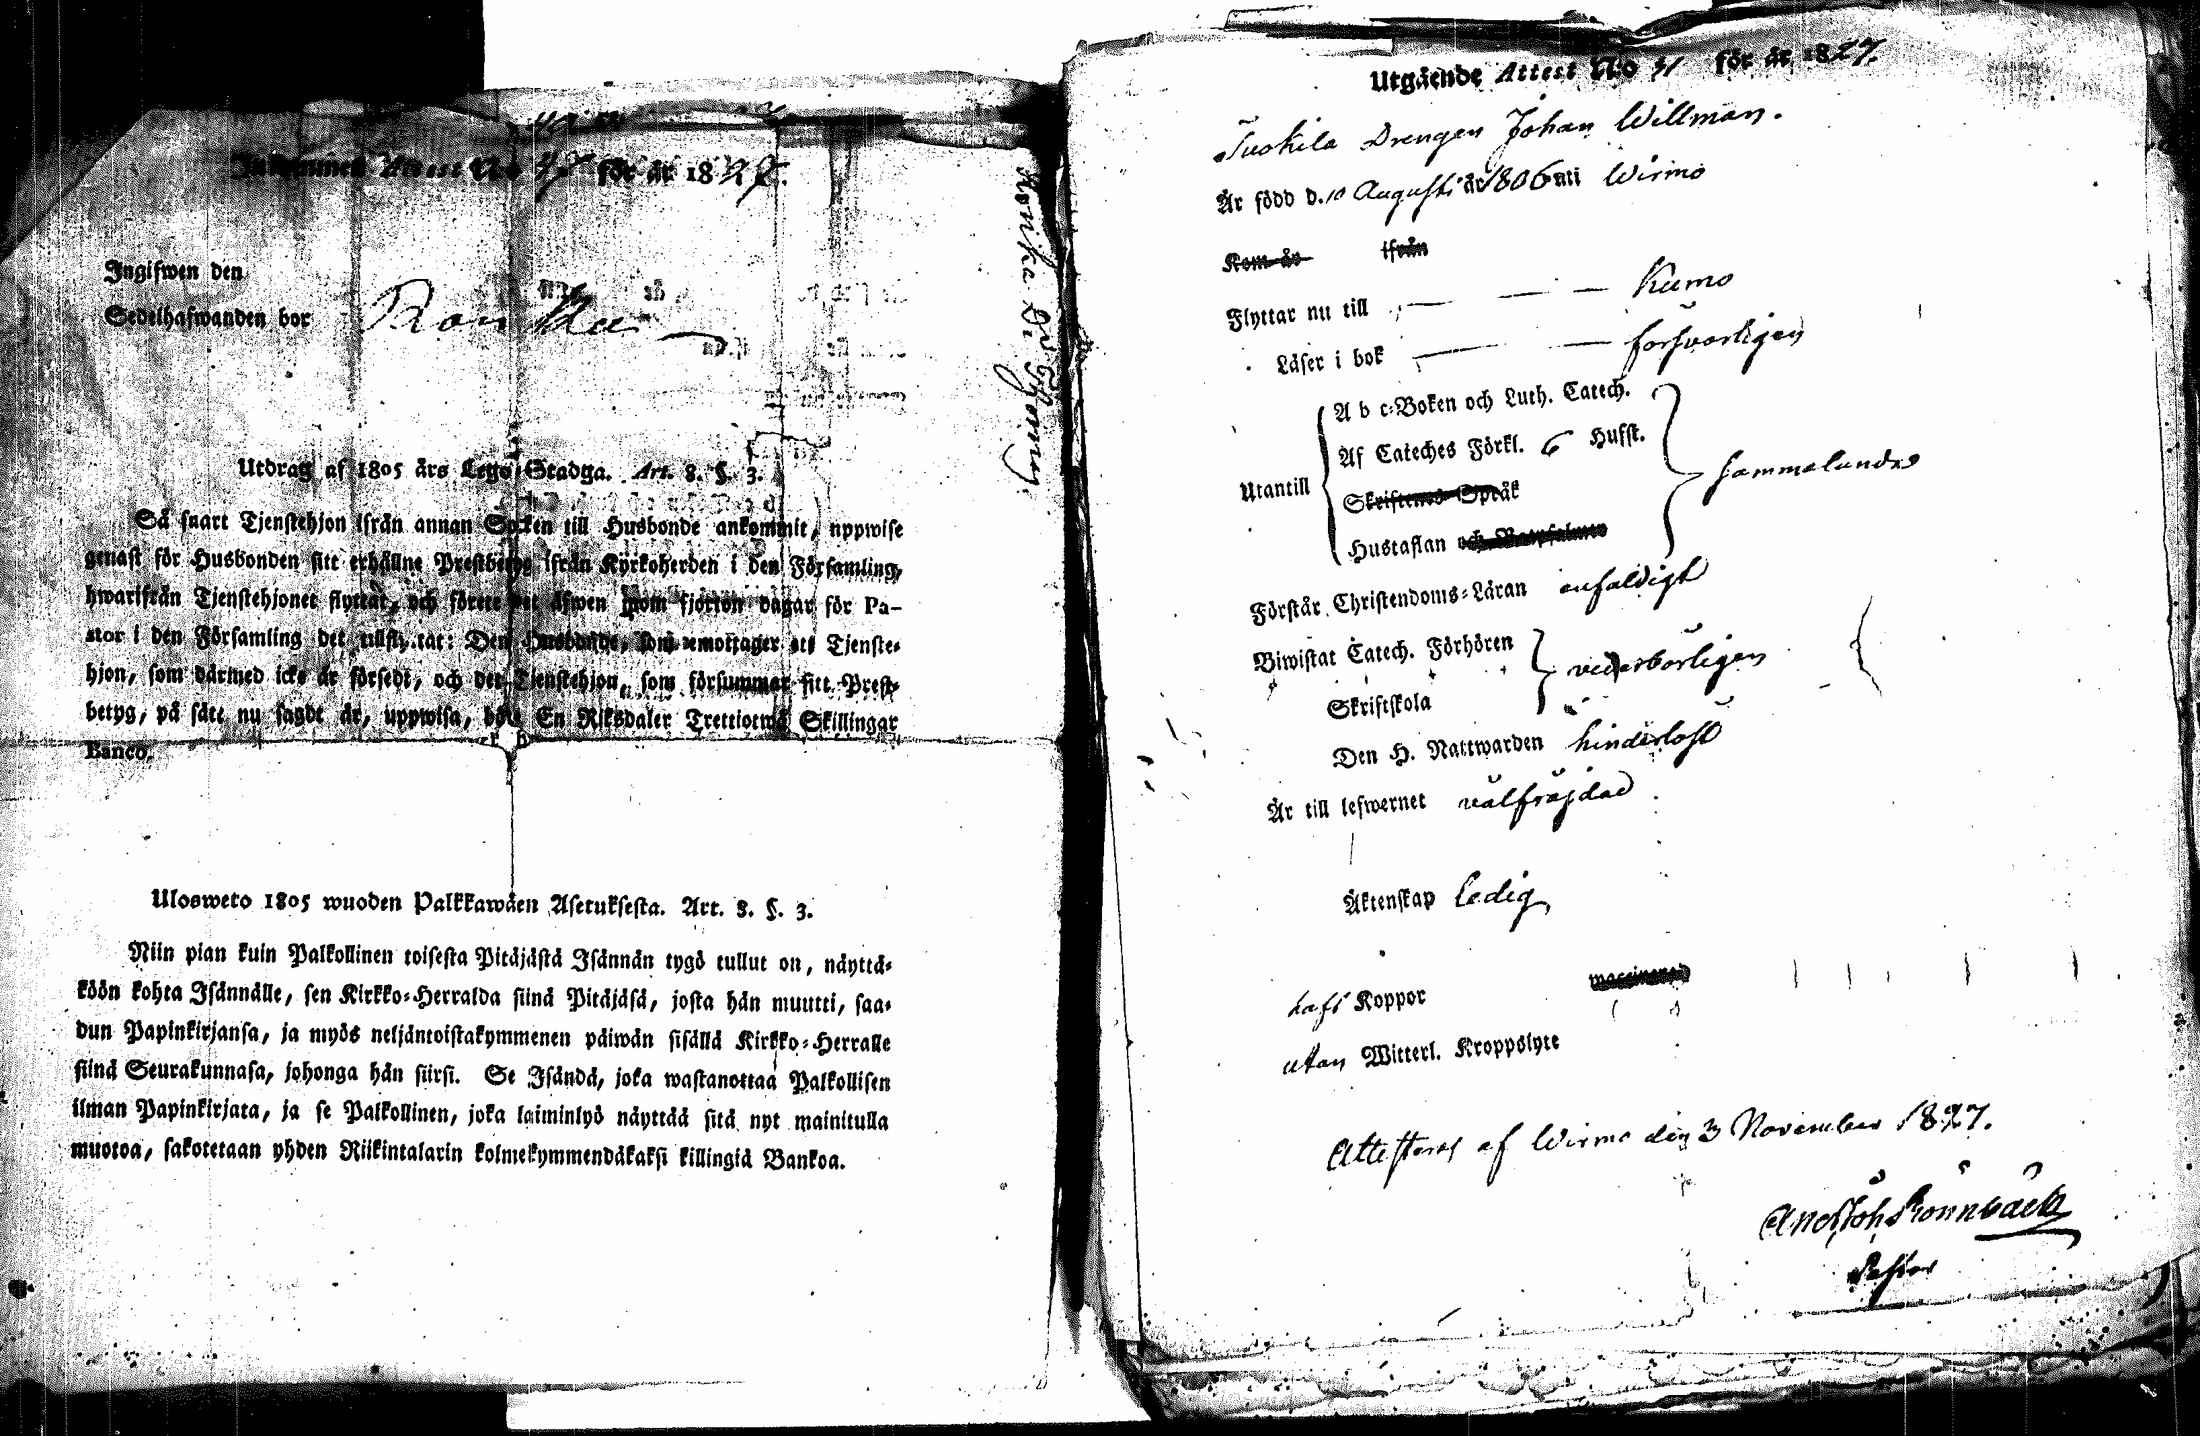 Inkommen Attest No 47 för år 1827.
Ingifwen den
Sedelhafwanden bor Ronka
Utdrag af 1805 års Lego-Stadga. Art. 8. §. 3.
Så snart Tjenstehjon ifrån annan Socken till Husbonde ankommit, uppwise
genast för Husbonden sitt erhållne Prestbetyg ifrån Kyrkoherden i den Församling,
hwarifrån Tjenstehjonet flyttat, och förete det äfwen inom fjorton dagar för Pa-
stor i den Församling det tillflyttat: Den Husbonde, som emottager ett Tjenste-
hjon, som därmed icke är försedt, och det Tjenstehjon, som försummar sitt Prest-
betyg, på sätt nu sagdt är, uppwisa, böte En Riksdaler Trettiotwå Skillingar
Banco.
Ulosweto 1805 wuoden Palkkawäen Asetuksesta. Art. 8. §. 3.
Niin pian kuin Palkollinen toisesta Pitäjästä Isännän tygö tullut on, näyttä-
köön kohta Isännälle, sen Kirkko-Herralda siinä Pitäjäsä, josta hän muutti, saa-
dun Papinkirjansa, ja myös neljäntoistakymmenen päiwän sisällä Kirkko-Herralle
siinä Seurakunnasa, johonga hän siirsi. Se Isändä, joka wastanottaa Palkollisen
ilman Papinkirjata, ja se Palkollinen, joka laiminlyö näyttää sitä nyt mainitulla
muotoa, sakotetaan yhden Riikintalarin kolmekymmendäkaksi killingiä Bankoa.
Utgående Attest No 31 för år 1827.
Tuokila Drengen Johan Willman.
Är född d. 10 Augusti år 1806 uti Wirmo
Kom år ifrån
Flyttar nu till — — — Kumo
Läser i bok — — försvarligen
Utantill
A b c-Boken och Luth. Catech.
Af Cateches Förkl. 6 Hufst.
Skriftenes Språk
Hustaflan och Botpsalmen
sammalunda
Förstår Christendoms-Läran enfaldigt
Biwistat Catech. Förhören
Skriftskola
vederbörligen
Den H. Nattwarden hinderlöst
Är till lefwernet välfräjdad
Äktenskap ledig
haft Koppor waccinerad
utan Witterl. Kroppslyte
Attesteras af Wirmo den 3 November 1827.
And Joh Rönnbäck
Pastor